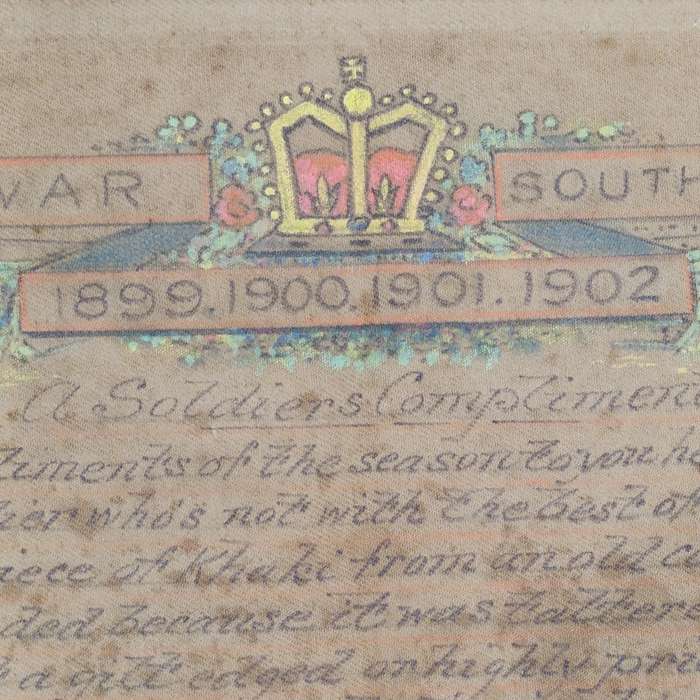 WAR SOUTH
1899. 1900. 1901. 1902
A Soldiers Compliment
liments of the season to you he
ier who's not with the best o
iece of Khaki from an old c
ded because it was tatter
a gilt edged or highly pri